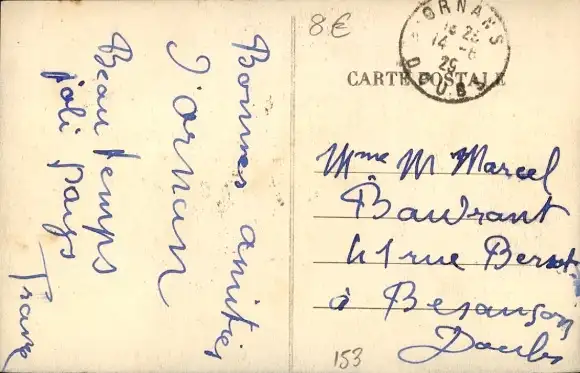 Bonnes amitiés
d'ornan
Beau temps
joli pays
8€
ORNANS
14 25
14 -6
29
DOUBS
CARTE POSTALE
Mme M Marcel
Baudrant
41 rue
à Besançon
Doubs
153